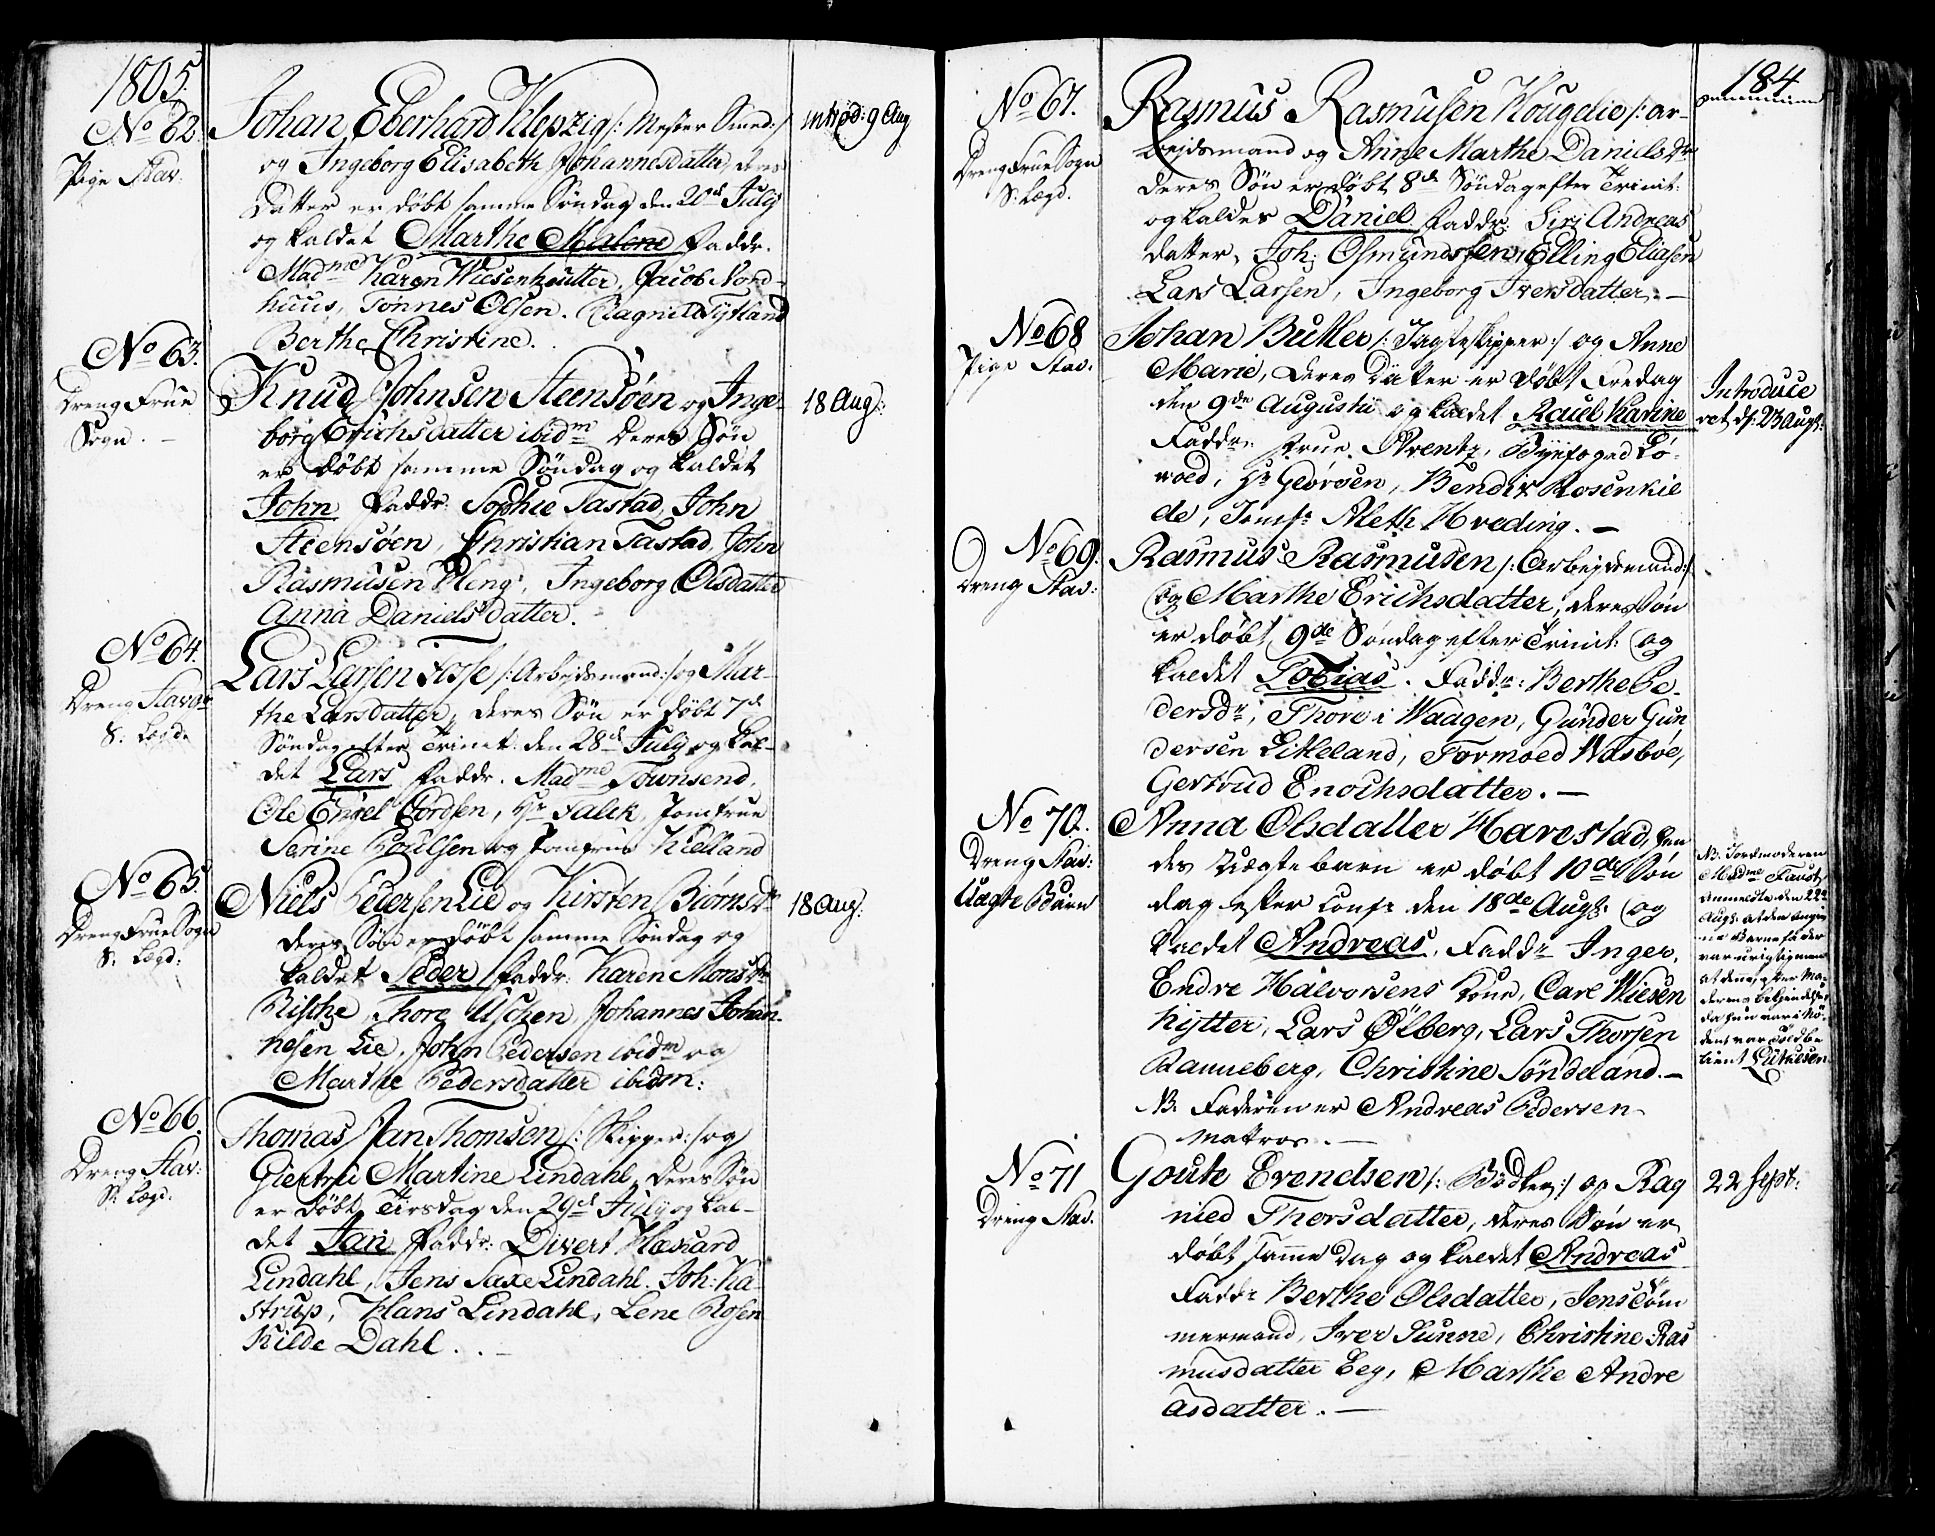 1805.
No 62.
Pige Stav.
Johan Eberhard Klepzig /: Mester Smed :/
og Ingeborg Elisabeth Johannesdatter, deres
Datter er døbt samme Søndag den 20d July
og kaldet Marthe Malene Faddr.
Madme Karen Wiesenhütter, Jacob Nord-
huus, Tønnes Olsen. Ragnild Tytland
Berthe Christine.
Introd: 9 Aug
No 63.
Dreng Frue
Sogn. -
Knud Johnsen Steensøen og Inge-
borg Erichsdatter ibidm Deres Søn
er døbt samme Søndag og kaldet
John Faddr: Sophie Tastad, John
Steensøen, Christian Tastad, John
Rasmusen Eleng, Ingeborg Olsdatter
Anna Danielsdatter.
18 Aug:
No 64.
Dreng Stavan
S. Lægd.
Lars Larsen Fosse /: Arbejdsmand :/ og Mar-
the Larsdatter, deres Søn er døbt 7d
Søndag efter Trinit: den 28d July og kal-
det Lars Faddr. Madme Townsend,
Ole Engel Cordsen, Hr Falck, Jomfrue
Serine Poulsen og Jomfrue Kielland
No 65.
Dreng Frue Sogn
S. Lægd:
Niels Pedersen Lie og Kirsten Biörnsdr
deres Søn er døbt samme Søndag og
kaldet Peder Faddr: Karen Monsdr
Riskhe, Thore Aschen, Johannes Johan-
nesen Lie, John Pedersen ibidm og
Marthe Pedersdatter ibidm:
18 Aug:
No 66.
Dreng Stav:
S. Lægd.
Thomas Jan Thomsen /: Skipper :/ og
Giertrü Martine Lindahl, deres Søn
er døbt Tirsdag den 29d July og kal-
det Jan Faddr: Divert
Lindahl, Jens Saxe Lindahl. Joh: Ka-
strup, Hans Lindahl, Lene Rosen
Kilde Dahl. . -
184
No 67.
Dreng Frue Sogn
S. Lægd.
Rasmus Rasmusen Hougelie /: ar-
bejdsmand og Anne Marthe Danielsdr
deres Søn er døbt 8d Søndag efter Trinit:
og kaldes Daniel Faddr: Siri Andreas
datter, Joh: Osmundssen, Elling Eliasen
Lars Larsen, Ingeborg Iversdatter. -
No 68
Pige Stav.
Johan Buller /: Jagteskipper :/ og Anne
Marie, deres Datter er døbt Fredag
den 9de Augusti og kaldet Rauel Karine
Faddr. Frue Arentz, Byefoged Lö-
wold, Hr Georgsen, Bendix Rosenkil
de, Jomfr Aleth Hveding. -
Introduce
ret d: 23 Augt:
No 69.
Dreng Stav:
Rasmus Rasmusen /: Arbejdsmand :/
og Marthe Erichsdatter, deres Søn
er døbt 9de Søndag efter Trinit: og
kaldet Tobias. Faddr: Berthe Pe-
dersdr, Thore i Waagen, Günder Gun
dersen Eikeland, Tormoed Wasbøe,
Gertrud Enochsdatter. -
No 70.
Dreng Stav:
Uægte Barn
Anna Olsdatter Harestad, hen
des Uægte barn er døbt 10de Søn
dag efter den 18de Augt: og
kaldet Andreas. Faddr Inger,
Endre Halvorsens Kone, Carl Wiesen
hytter, Lars Ølberg, Lars Thorsen
Ranneberg, Christine Sondeland. -
NB. Faderen er Andreas Pedersen
matros. -
NB: Jordmoderen
Madme Faust
anmeldte den 22d
Augt: at den angiv
ne Barnefader
var urigtig men
at denne, efter Mo
derens bekiendelse,
da hun var i Nö-
den, var Soldte
tient Lütuesen
No 71
Dreng Stav.
Goute Evendsen /: Bødker :/ og Rag
nied Thorsdatter, deres Søn er
døbt samme Dag og kaldet Andreas
Faddr Berthe Olsdatter, Jens Töm
mermand, Iver Sunne, Christine Ras
musdatter Eeg, Marthe Andre
asdatter. -
22 Sept: